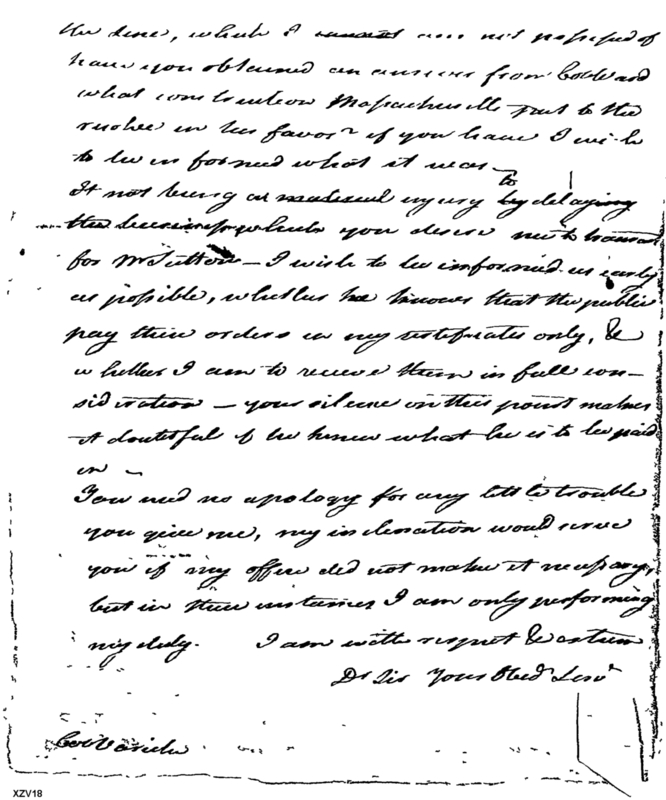 the same, which I cannot am not possessed of
have you obtained an answer from Col Ward
what construction Massachusetts put to the
resolve in his favor? if you have I wish
to be informed what it was —
It not being a material injury to by delaying
the business which you desire me to transact
for Mr Sutton — I wish to be informed as early
as possible, whether he knows that the public
pay their orders in my certificates only, &
whether I am to receive them in full con-
sideration — your silence on this point makes
it doubtful if he knew what he is to be paid
in —
You need no apology for any little trouble
you give me, my inclination would serve
you if my office did not make it necessary,
but in these instances I am only performing
my duty. I am with respect & esteem
Dr Sir Your Obedt Servt
Col
XZV18